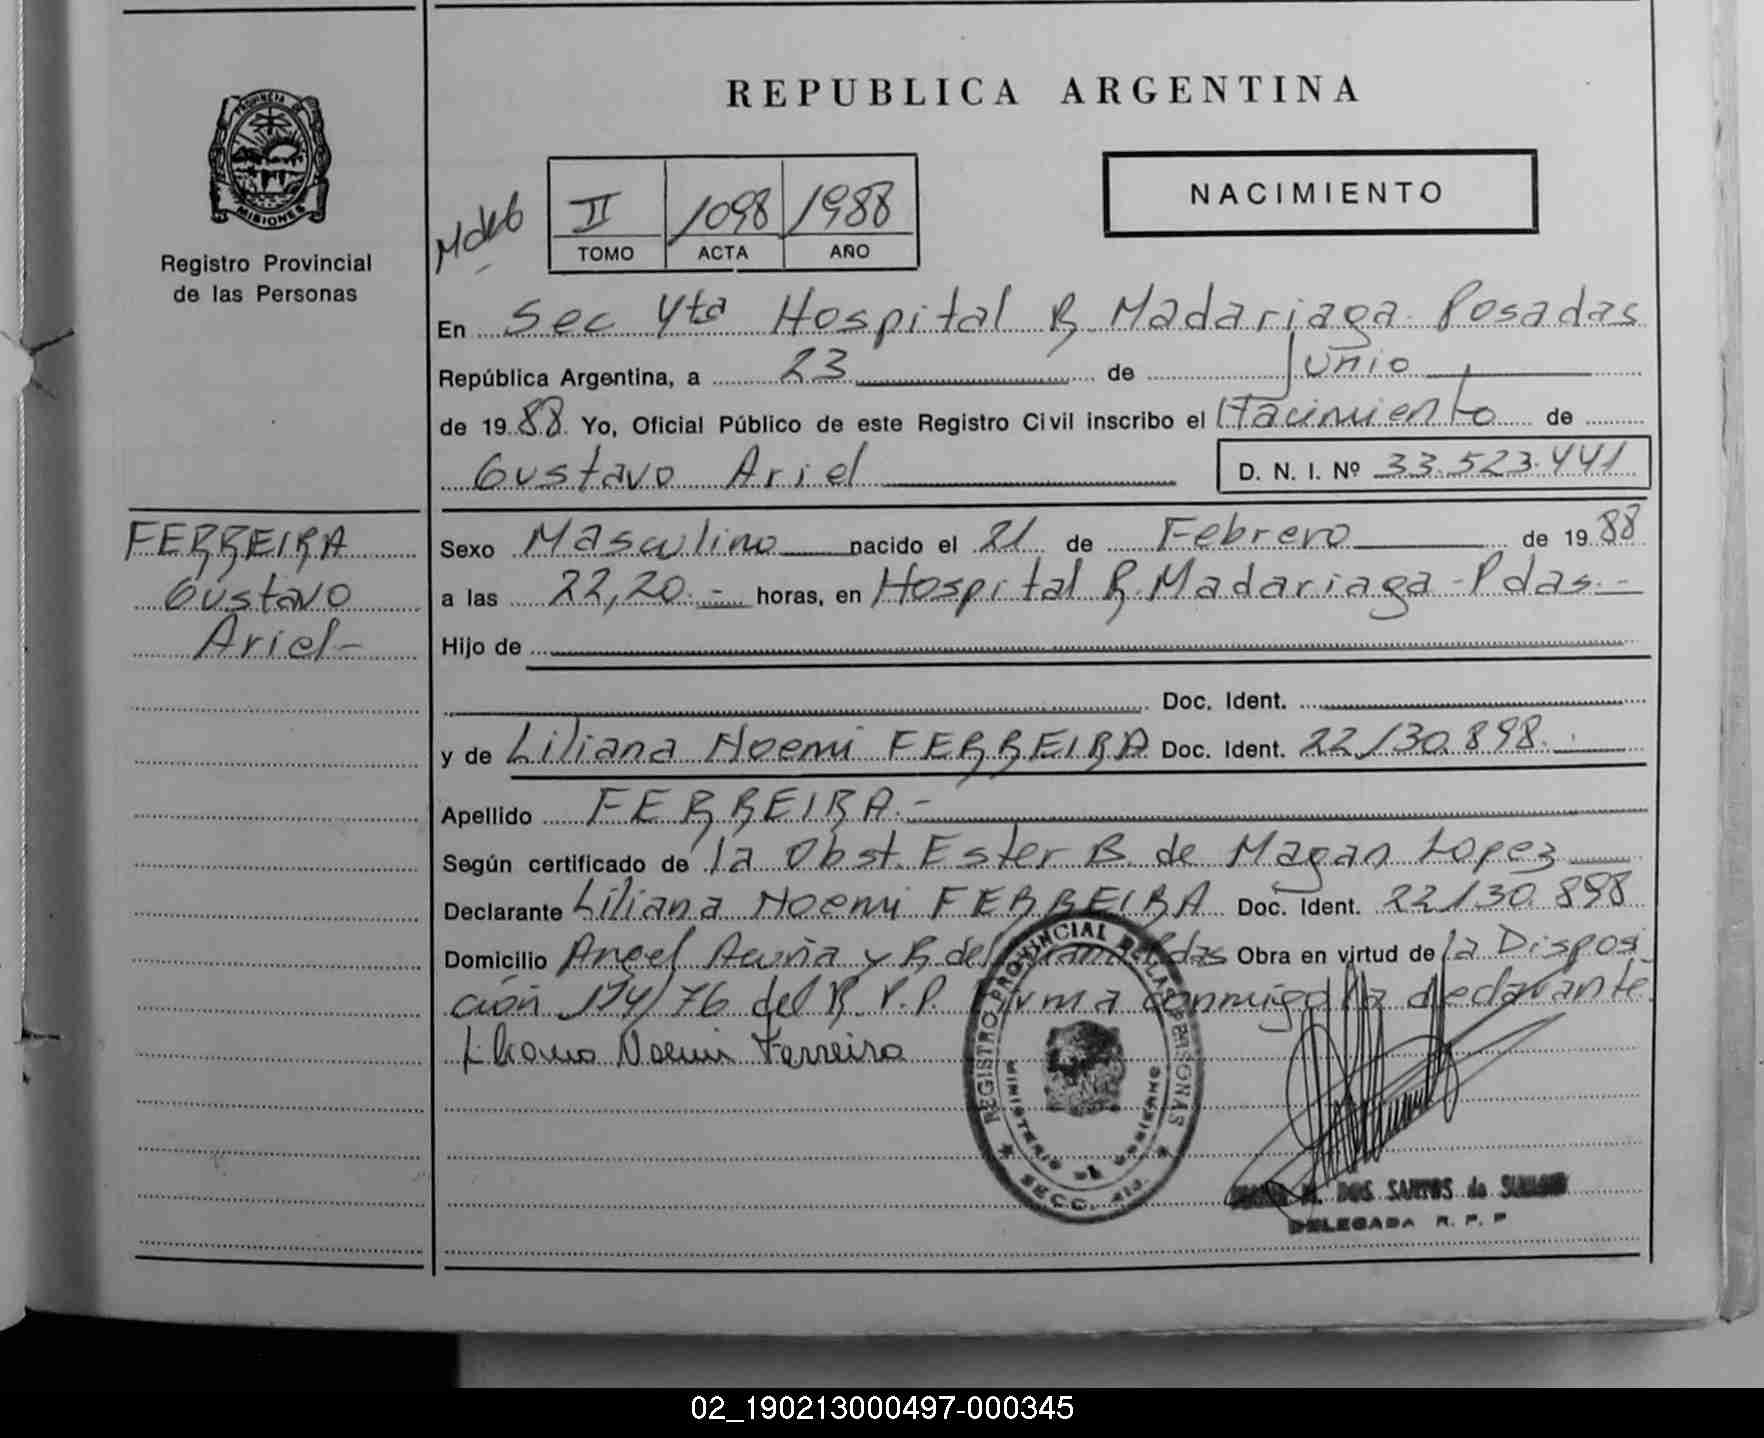 PROVINCIA DE
MISIONES
Registro Provincial
de las Personas
FERREIRA
Gustavo
Ariel-
REPUBLICA ARGENTINA
NACIMIENTO
II 1098 1988
TOMO ACTA AÑO
En Sec 4ta Hospital R. Madariaga Posadas
República Argentina, a 23 de Junio
de 1988 Yo, Oficial Público de este Registro Civil inscribo el Nacimiento de
Gustavo Ariel D. N. I. Nº 33.523.441
Sexo Masculino nacido el 21 de Febrero de 1988
a las 22,20.- horas, en Hospital R. Madariaga-Pdas.-
Hijo de
Doc. Ident.
y de Liliana Noemi FERREIRA Doc. Ident. 22.130.898.
Apellido FERREIRA.-
Según certificado de la Obst. Ester B. de Magan Lopez
Declarante Liliana Noemi FERREIRA Doc. Ident. 22.130.898
Domicilio Angel Acuña y R. del Pdas Obra en virtud de la Disposi
ción 174/76 del R.P.P. Firma conmigo la declarante.
Liliana Noemi Ferreira
REGISTRO PROVINCIAL DE LAS PERSONAS
MINISTERIO DE GOBIERNO
SECC. 4ta.
M. DOS SANTOS de
DELEGADA R. P. P
02_190213000497-000345